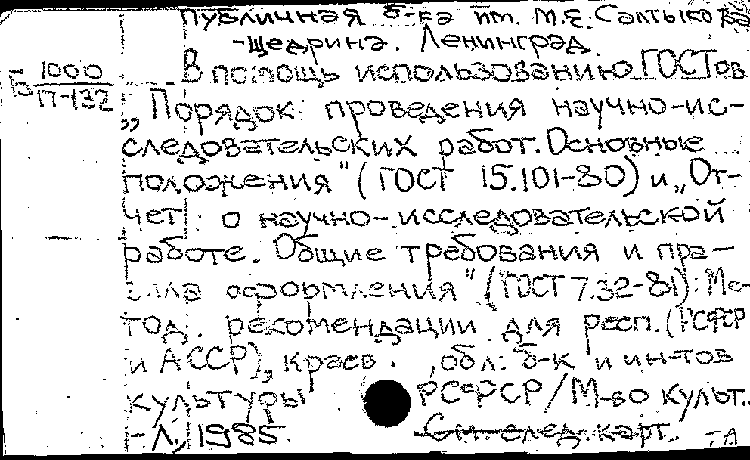 Публичная б-ка им. М.Е. Салтыкова
-Щедрина. Ленинград.
Б 1000
П-132
В помощь использованию ГОСТов
„Порядок проведения научно-ис-
следовательских работ. Основные
положения" (ГОСТ 15.101-80) и „От-
чет о научно-исследовательской
работе. Общие требования и пра-
вила оформления" (ГОСТ 7.32-81): Ме-
тод. рекомендации для респ. (РСФСР
и АССР), краев., обл. б-к и ин-тов
культуры РСФСР / М-во культ..
- Л., 1985.
См. след. карт.